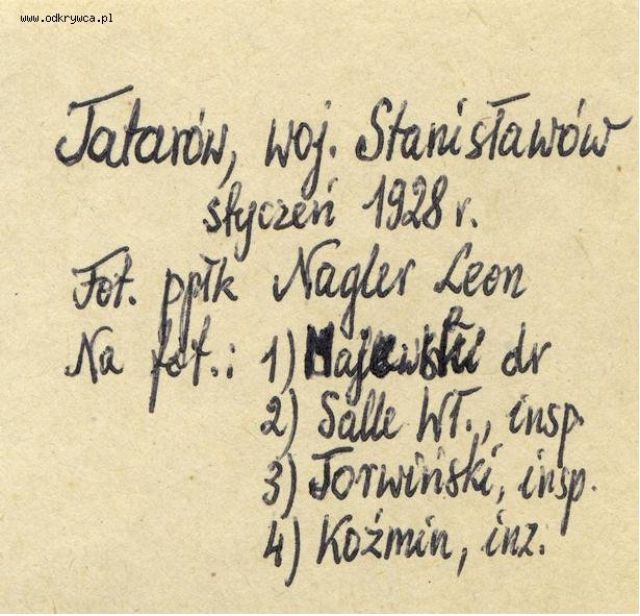 www.odkrywca.pl
Tatarów, woj. Stanisławów
styczeń 1928 r.
Fot. ppłk Nagler Leon
Na fot.: 1) Majewski dr
2) Salle Wł., insp.
3) Torwiński, insp.
4) Koźmin, inż.